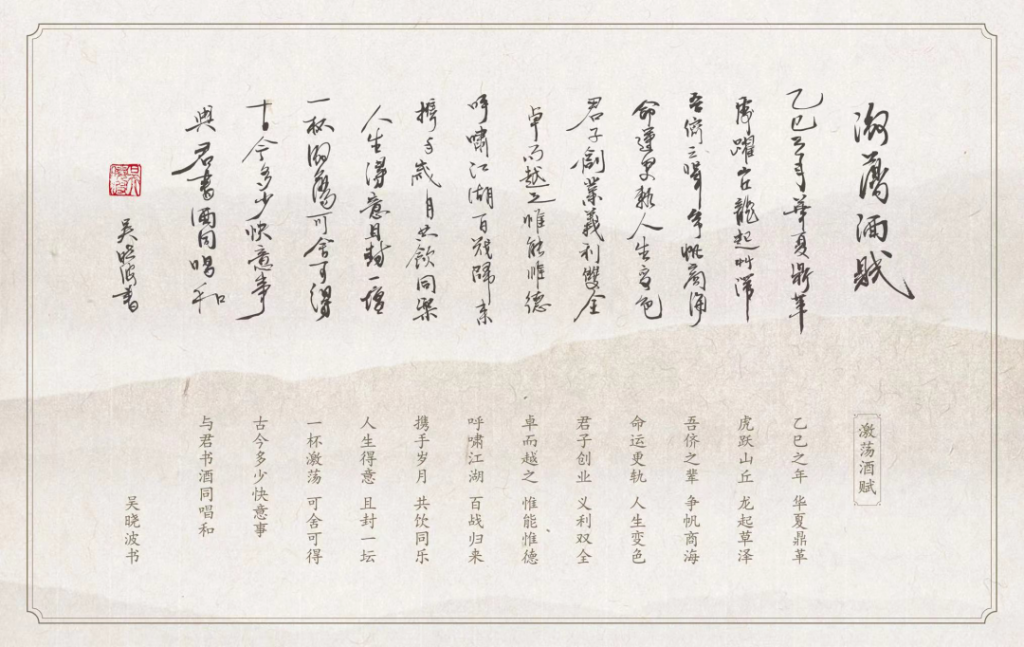 激蕩酒賦
乙巳之年華夏鼎革
虎躍山丘龍起草澤
吾儕之輩爭帆商海
命運更軌人生变色
君子創業義利雙全
卓而越之惟能惟德
呼嘯江湖百戰歸来
攜手歲月共飲同樂
人生得意且封一壇
一杯激蕩可舍可得
古今多少快意事
與君書酒同唱和
吴曉波書
激荡酒赋
乙巳之年 华夏鼎革
虎跃山丘 龙起草泽
吾侪之辈 争帆商海
命运更轨 人生变色
君子创业 义利双全
卓而越之 惟能惟德
呼啸江湖 百战归来
携手岁月 共饮同乐
人生得意 且封一坛
一杯激荡 可舍可得
古今多少快意事
与君书酒同唱和
吴晓波书